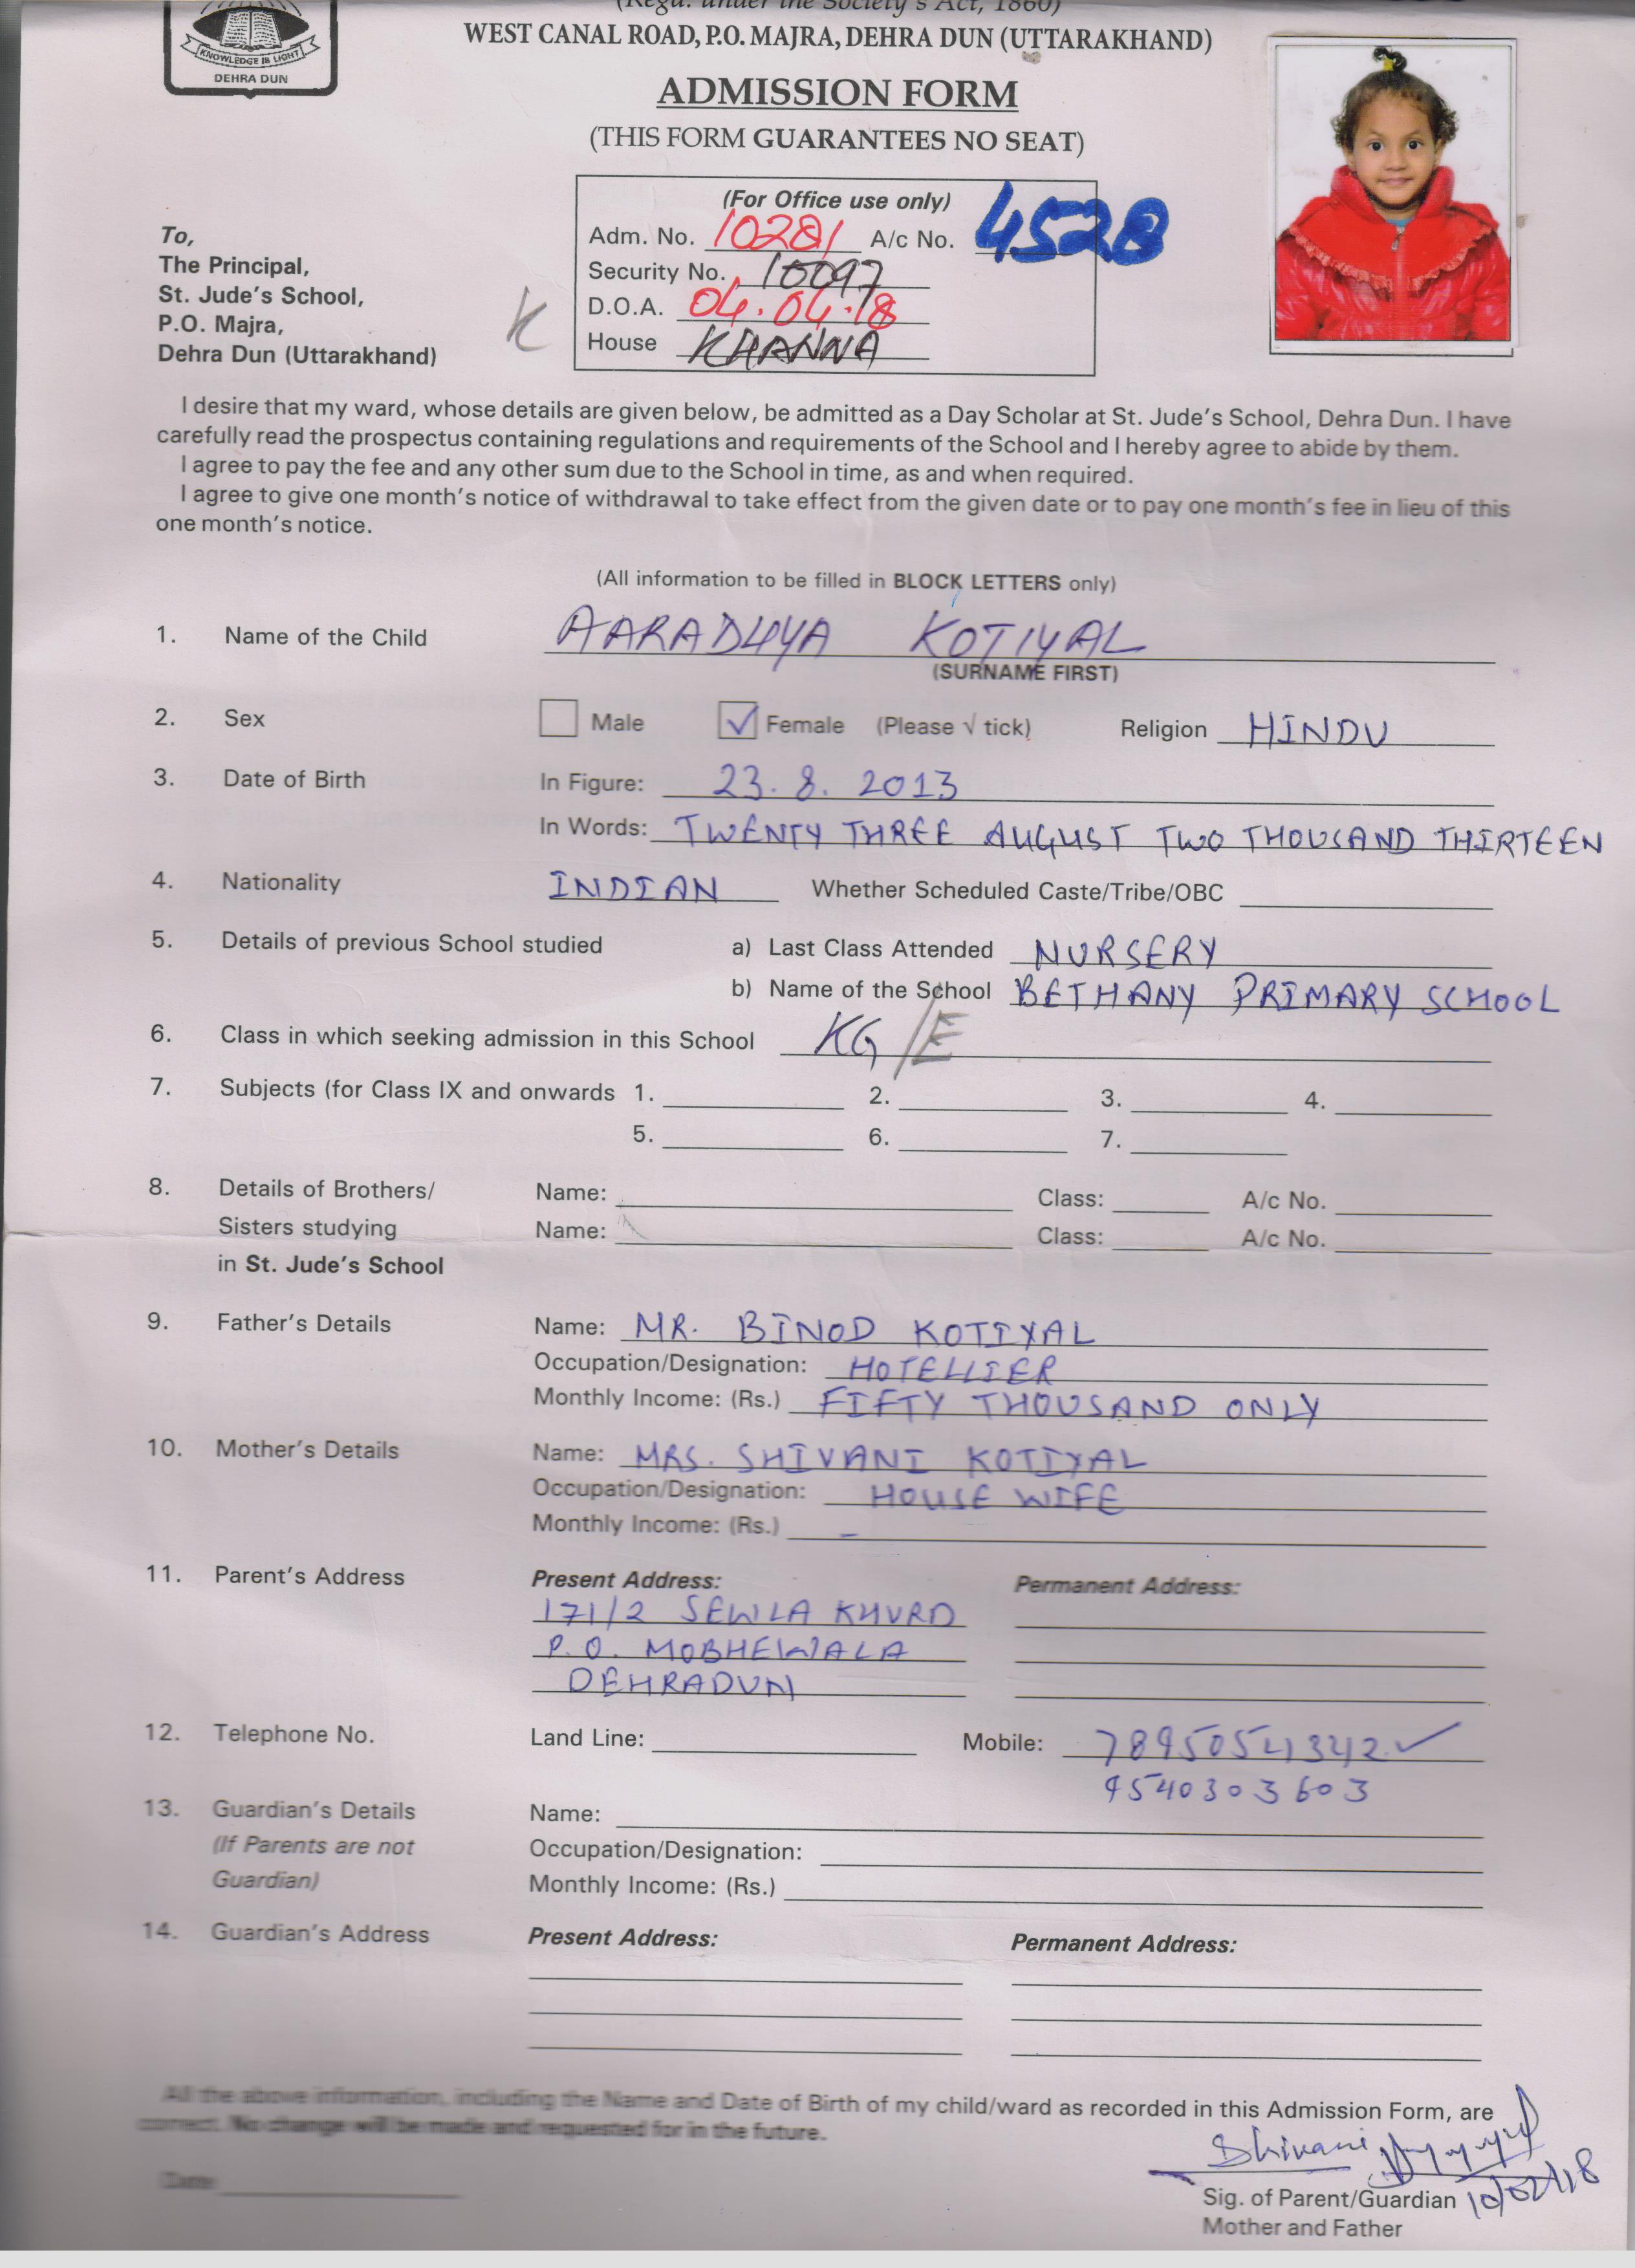 (Regd. under the Society's Act, 1860)
WEST CANAL ROAD, P.O. MAJRA, DEHRA DUN (UTTARAKHAND)
KNOWLEDGE IS LIGHT
DEHRA DUN
ADMISSION FORM
(THIS FORM GUARANTEES NO SEAT)
(For Office use only)
Adm. No. 10281 A/c No. 4528
Security No. 10097
D.O.A. 04.04.18
House KHANNA
K
To,
The Principal,
St. Jude's School,
P.O. Majra,
Dehra Dun (Uttarakhand)
I desire that my ward, whose details are given below, be admitted as a Day Scholar at St. Jude's School, Dehra Dun. I have
carefully read the prospectus containing regulations and requirements of the School and I hereby agree to abide by them.
I agree to pay the fee and any other sum due to the School in time, as and when required.
I agree to give one month's notice of withdrawal to take effect from the given date or to pay one month's fee in lieu of this
one month's notice.
(All information to be filled in BLOCK LETTERS only)
1. Name of the Child AARADHYA KOTIYAL
(SURNAME FIRST)
2. Sex Male ✓ Female (Please √ tick) Religion HINDU
3. Date of Birth In Figure: 23. 8. 2013
In Words: TWENTY THREE AUGUST TWO THOUSAND THIRTEEN
4. Nationality INDIAN Whether Scheduled Caste/Tribe/OBC
5. Details of previous School studied a) Last Class Attended NURSERY
b) Name of the School BETHANY PRIMARY SCHOOL
6. Class in which seeking admission in this School KG/E
7. Subjects (for Class IX and onwards 1. 2. 3. 4.
5. 6. 7.
8. Details of Brothers/ Name: Class: A/c No.
Sisters studying Name: Class: A/c No.
in St. Jude's School
9. Father's Details Name: MR. BINOD KOTIYAL
Occupation/Designation: HOTELLIER
Monthly Income: (Rs.) FIFTY THOUSAND ONLY
10. Mother's Details Name: MRS. SHIVANI KOTIYAL
Occupation/Designation: HOUSE WIFE
Monthly Income: (Rs.) –
11. Parent's Address Present Address: Permanent Address:
171/2 SEWLA KHURD
P.O. MOBHEWALA
DEHRADUN
12. Telephone No. Land Line: Mobile: 7895054342 ✓
9540303603
13. Guardian's Details Name:
(If Parents are not Occupation/Designation:
Guardian) Monthly Income: (Rs.)
14. Guardian's Address Present Address: Permanent Address:
All the above information, including the Name and Date of Birth of my child/ward as recorded in this Admission Form, are
correct. No change will be made and requested for in the future.
Shivani
Date
Sig. of Parent/Guardian 10/02/18
Mother and Father